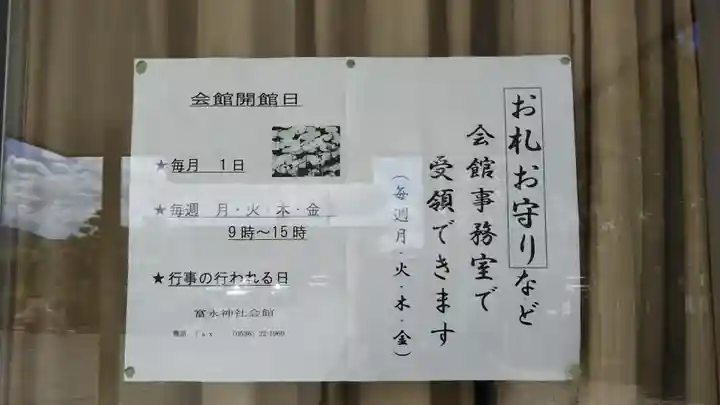 会館開館日
★毎月 1日
★毎週 月・火・木・金
9時～15時
★行事の行われる日
富永神社会館
電話 fax (0536) 22-1969
お札お守りなど
会館事務室で
受領できます
(毎週月・火・木・金)